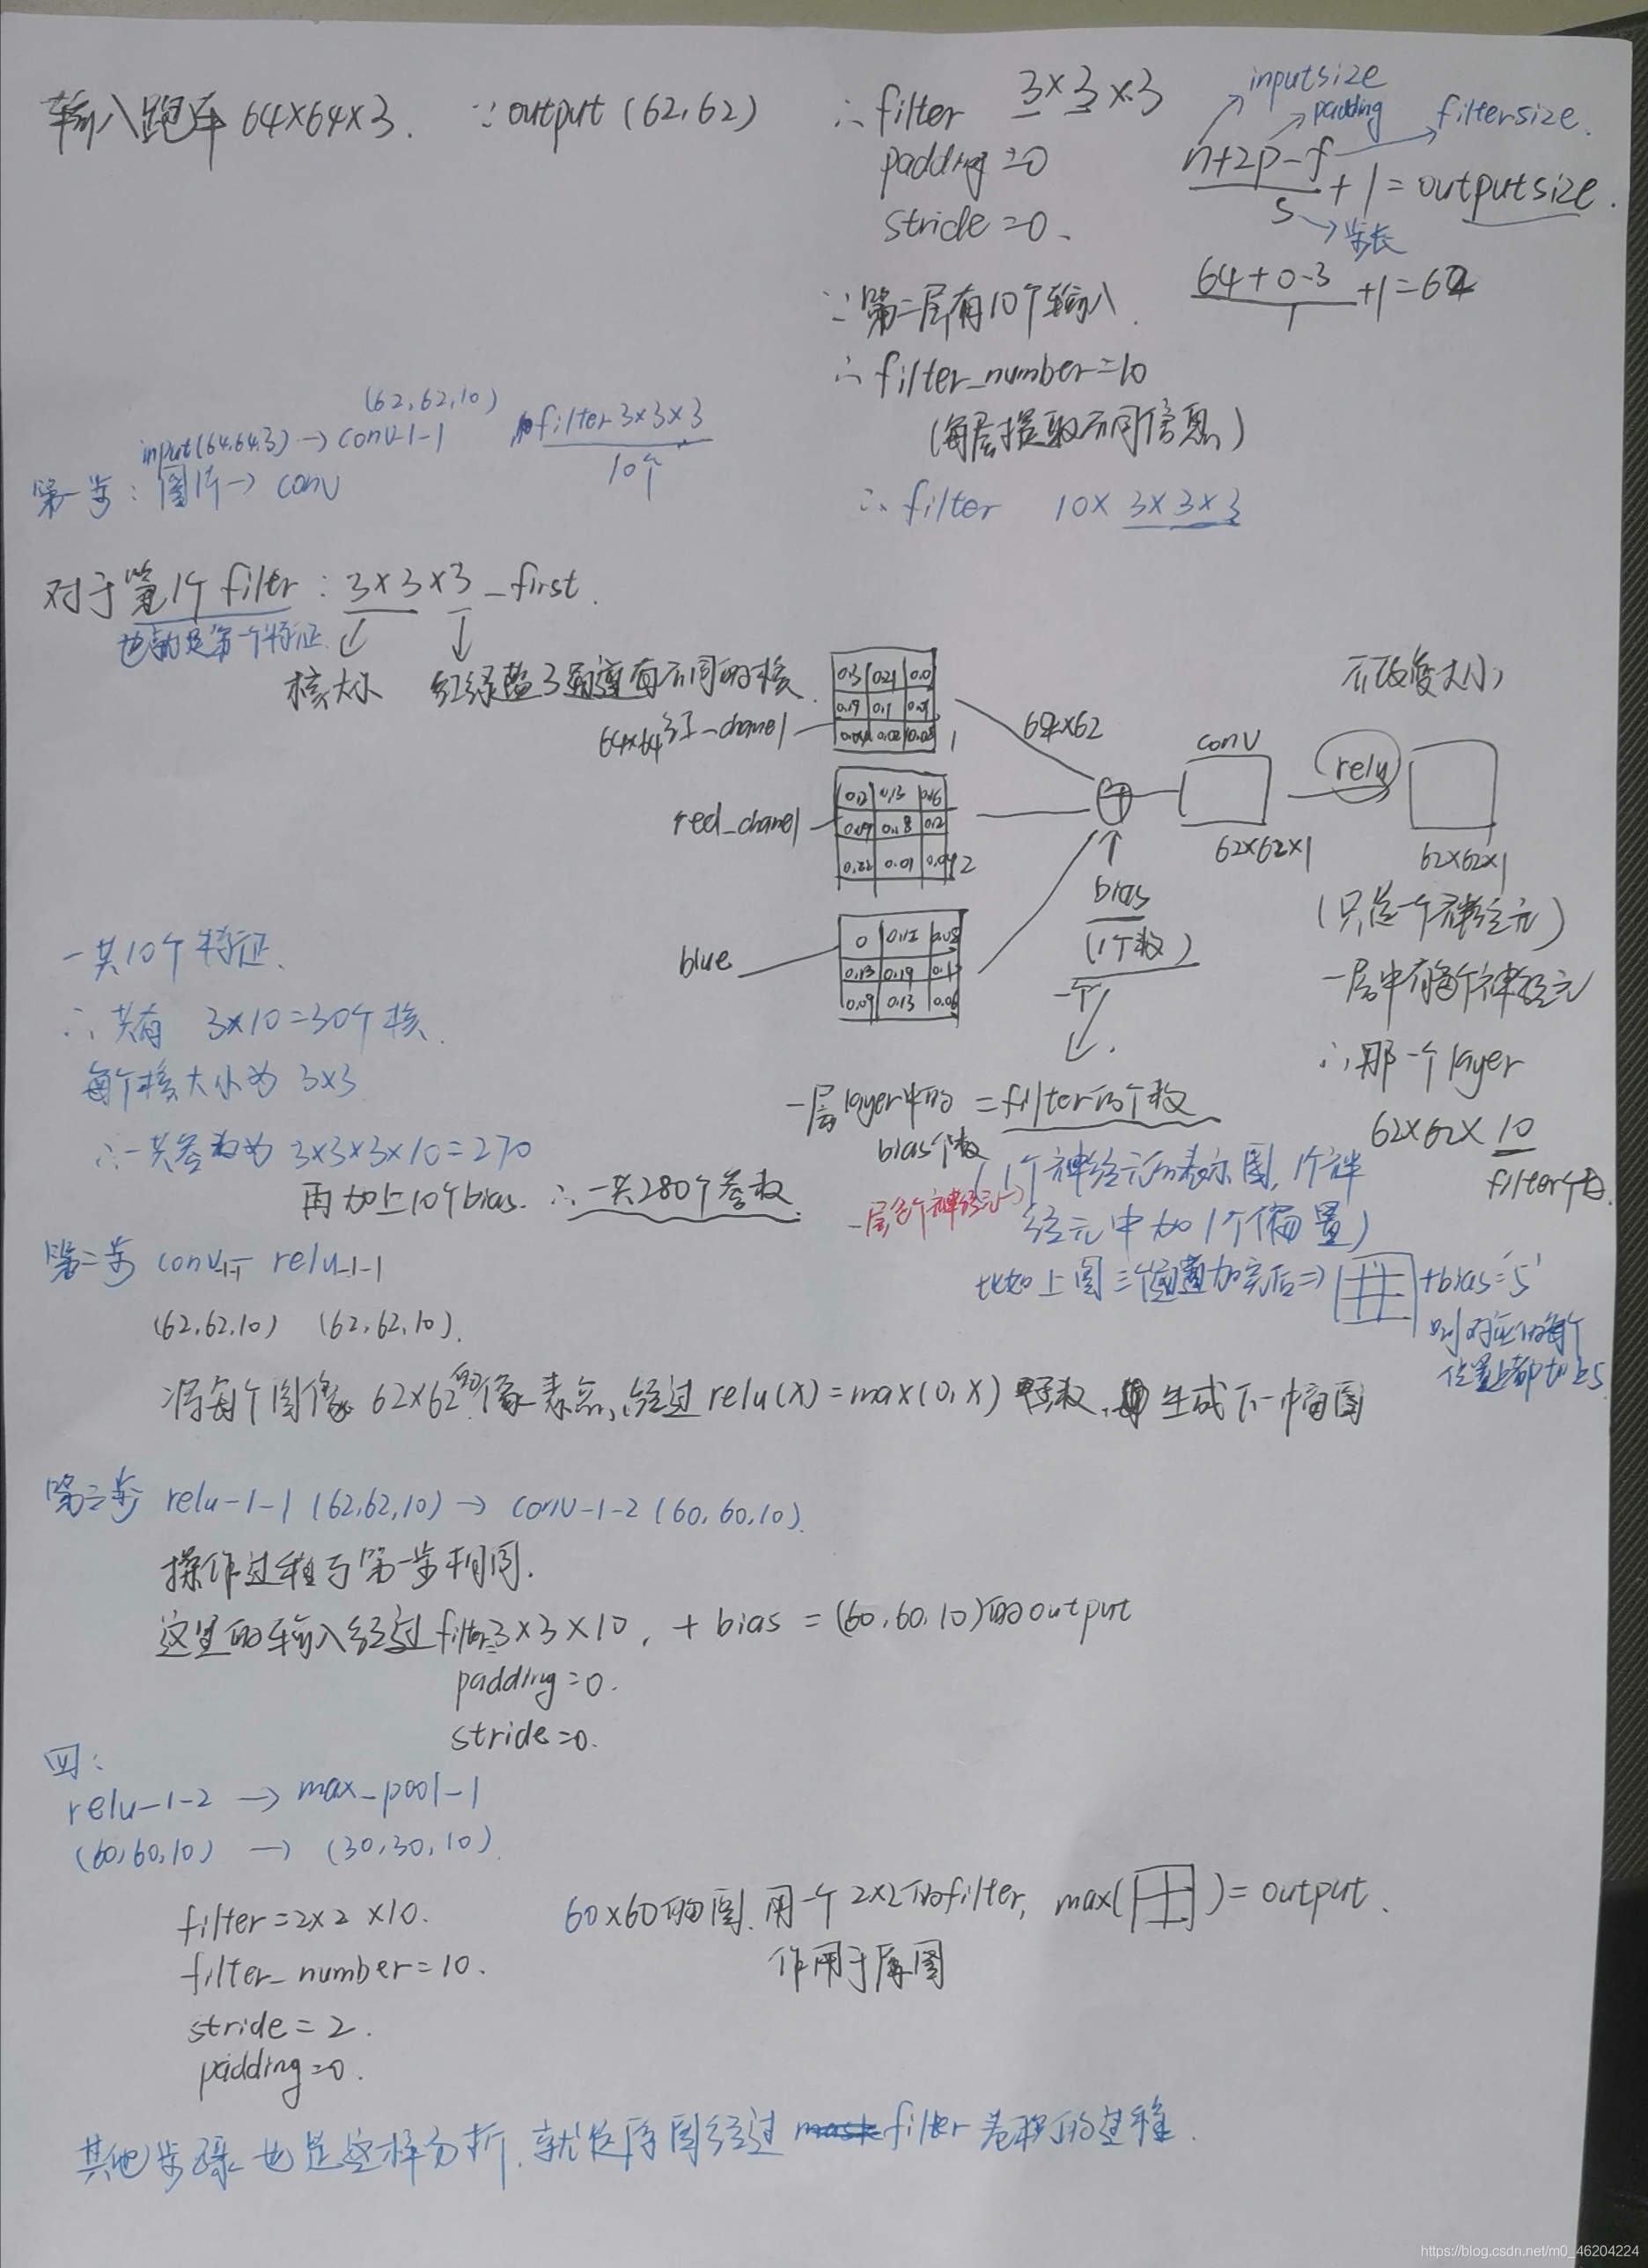 输入跑车 64×64×3. ∵ output (62, 62)
∴ filter 3×3×3
padding=0
stride=0.
inputsize
padding
filtersize.
n+2p-f
s
+1=outputsize.
步长
64+0-3
1
+1=62
∵ 第二层有10个输入.
∴ filter_number=10
(每层提取不同信息)
∴ filter 10×3×3×3
(62,62,10)
input(64,64,3) → conv-1-1 filter 3×3×3
10个
第一步: 图片 → conv
对于第1个filter: 3×3×3_first.
也就是第一个特征.
核大小 红绿蓝3通道有不同的核.
64×64 _chanel
0.3 0.21 0.0
0.19 0.1
1
red_chanel
0.2 0.13 0.16
0.09 0.18 0.12
0.22 0.01 0.04
2
blue
0 0.12 0.08
0.13 0.19
0.09 0.13 0.06
62×62
bias
(1个数)
一个
conv
62×62×1
relu
不改变大小
62×62×1
(只是一个神经元)
一层中有每个神经元
∴ 那一个layer
62×62×10
filter个数
一层layer中的 = filter的个数
bias个数
一共10个特征.
∴ 共有 3×10=30个核.
每个核大小为 3×3
∴ 一共参数为 3×3×3×10=270
再加上10个bias. ∴ 一共280个参数.
一层多个神经元
(1个神经元的表示图, 1个神
经元中加1个偏置)
比如上图三个通道加完后 ⇒ +bias='5'
则对应的每个
位置上都加上5
第二步 conv-1-1 — relu-1-1
(62,62,10) (62,62,10).
将每个图像 62×62的像素点, 经过 relu(x)=max(0,x) 函数, 生成下一幅图
第三步 relu-1-1 (62,62,10) → conv-1-2 (60,60,10).
操作过程与第一步相同.
这里的输入经过filter 3×3×10, + bias = (60,60,10)的output
padding=0.
stride=0.
四:
relu-1-2 → max_pool-1
(60,60,10) → (30,30,10)
filter=2×2×10.
filter_number=10.
stride=2.
padding=0.
60×60的图, 用一个2×2的filter, max( )= output.
作用于原图
其他步骤也是这样分析, 就是原图经过 filter 卷积的过程.
https://blog.csdn.net/m0_46204224